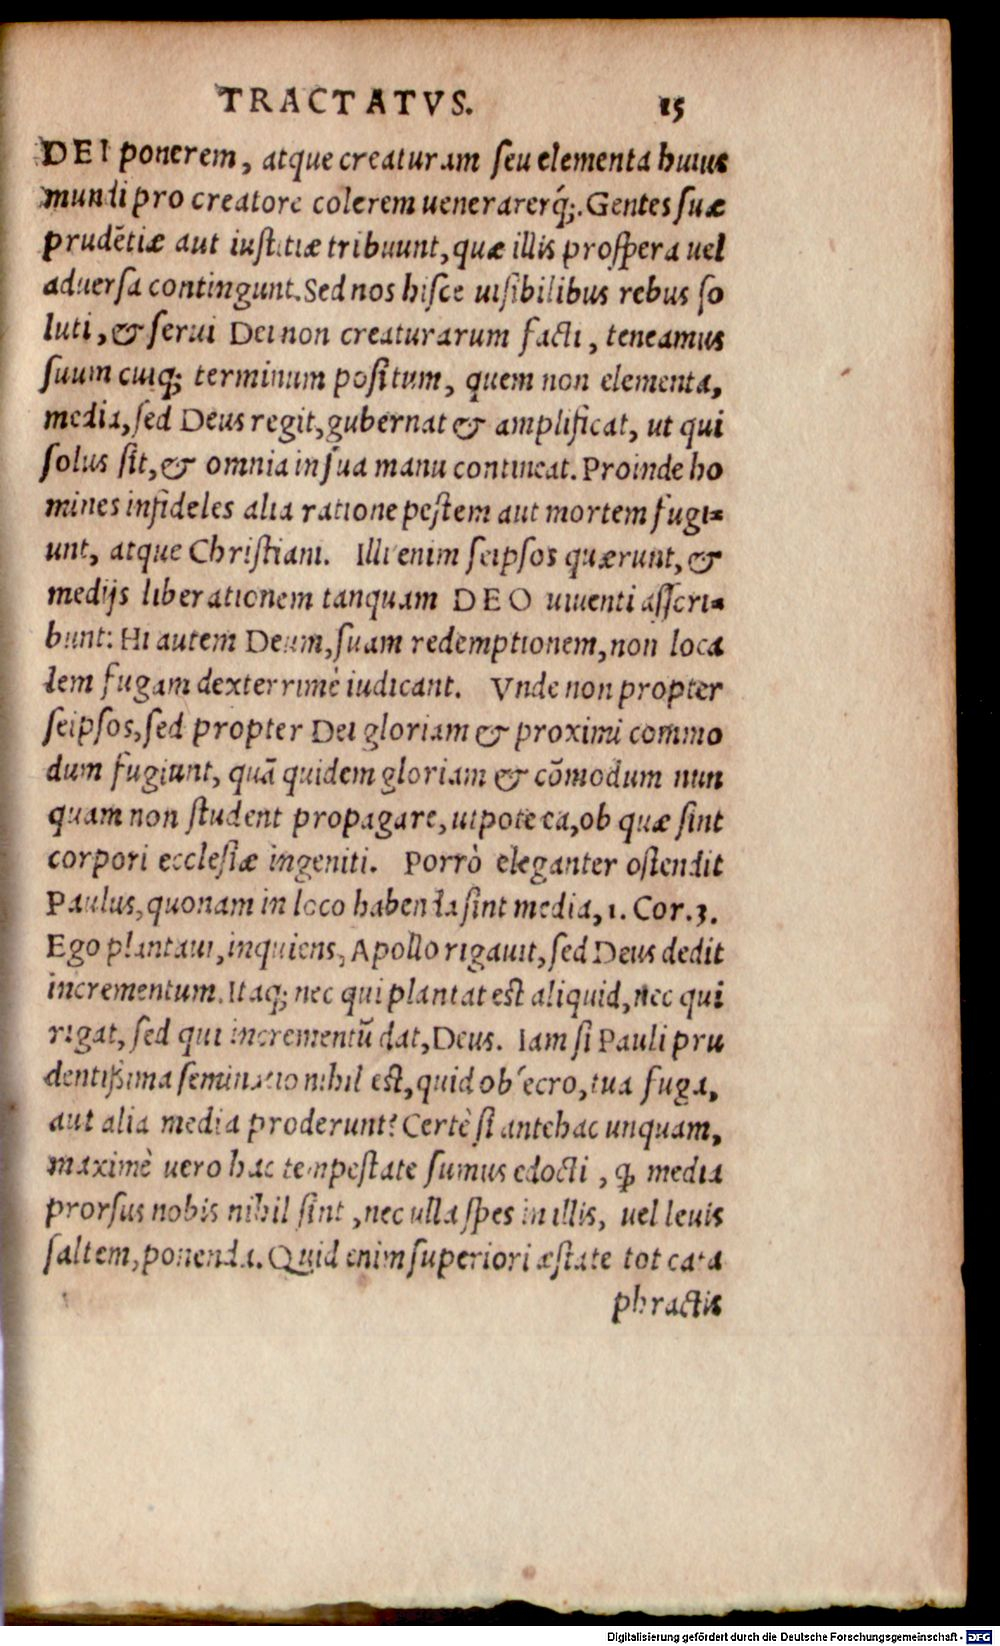 TRACTATVS. 15
DEI ponerem, atque creaturam ſeu elementa huius
mundi pro creatore colerem uenerarerq́;. Gentes ſuæ
prudẽtiæ aut iuſtitiæ tribuunt, quæ illis proſpera uel
aduerſa contingunt. Sed nos hiſce uiſibilibus rebus ſo
luti, & ſerui Dei non creaturarum facti, teneamus
ſuum cuiq; terminum poſitum, quem non elementa,
media, ſed Deus regit, gubernat & amplificat, ut qui
ſolus ſit, & omnia in ſua manu contineat. Proinde ho
mines infideles alia ratione peſtem aut mortem fugi⸗
unt, atque Chriſtiani. Illi enim ſeipſos quærunt, &
medijs liberationem tanquam DEO uiuenti aſſcri⸗
bunt: Hi autem Deum, ſuam redemptionem, non loca
lem fugam dexterrimè iudicant. Vnde non propter
ſeipſos, ſed propter Dei gloriam & proximi commo
dum fugiunt, quã quidem gloriam & cõmodum nun
quam non ſtudent propagare, utpote ea, ob quæ ſint
corpori eccleſiæ ingeniti. Porrò eleganter oſtendit
Paulus, quonam in loco habenda ſint media, 1. Cor. 3.
Ego plantaui, inquiens, Apollo rigauit, ſed Deus dedit
incrementum. Itaq; nec qui plantat eſt aliquid, nec qui
rigat, ſed qui incrementũ dat, Deus. Iam ſi Pauli pru
dentiſsima ſeminatio nihil eſt, quid obſecro, tua fuga,
aut alia media proderunt? Certè ſi antehac unquam,
maximè uero hac tempeſtate ſumus edocti, ꝙ media
prorſus nobis nihil ſint, nec ulla ſpes in illis, uel leuis
ſaltem, ponenda. Quid enim ſuperiori æſtate tot cata
phractis
Digitalisierung gefördert durch die Deutsche Forschungsgemeinschaft - DFG